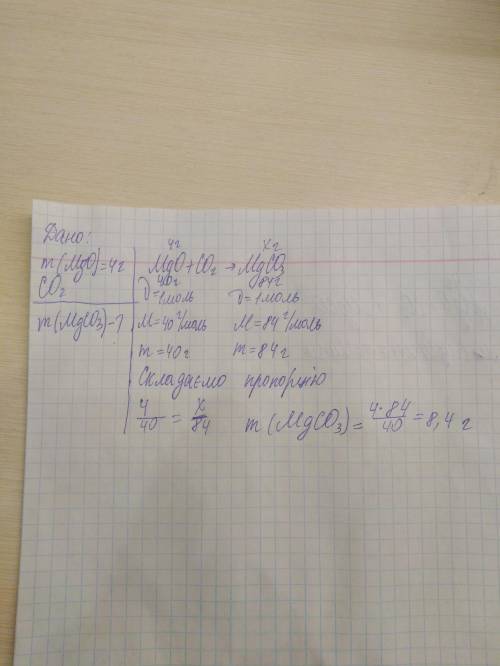 Дано:
m(MgO)=4г
CO2
m(MgCO3)-?
4г xг
MgO+CO2→MgCO3
40г 84г
ν=1моль ν=1моль
M=40г/моль M=84г/моль
m=40г m=84г
Складаємо пропорцію
4/40=x/84 m(MgCO3)=4·84/40=8,4 г